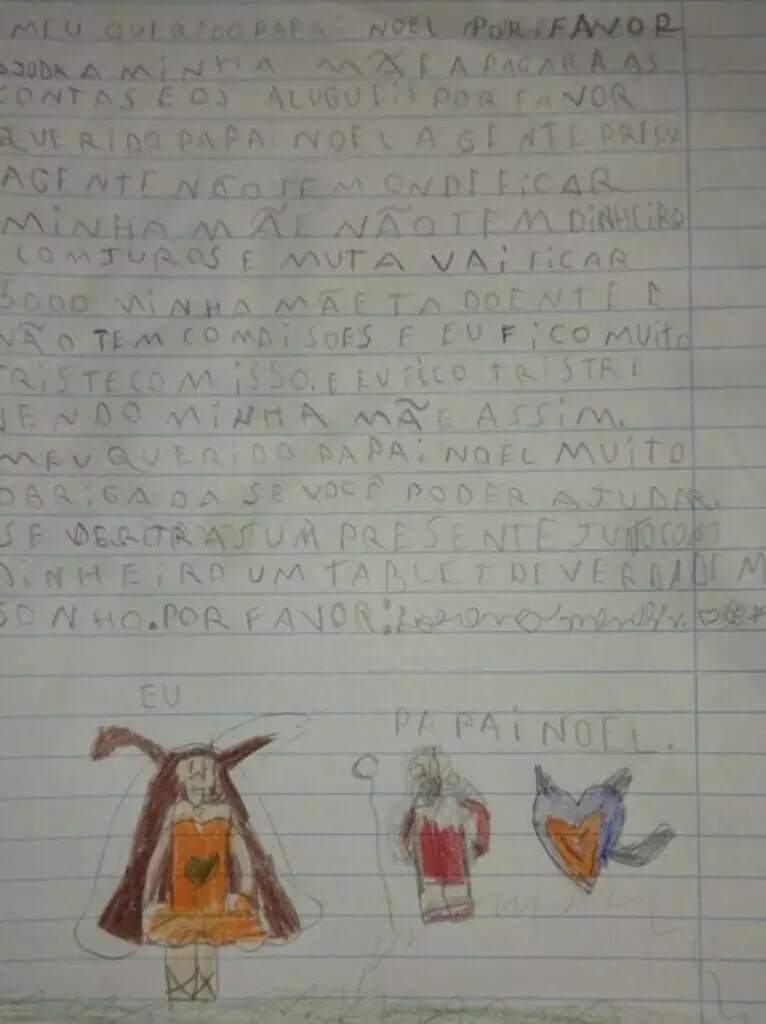 MEU QUERIDO PAPAi NOEL POR FAVOR
AJUDA A MINHA MÃE A PAGAR A AS
CONTAS E OS ALUGUEIS POR FAVOR
QUERIDO PAPAi NOEL A GENTE
A GENTE NÃO TEM ONDE FICAR
MINHA MÃE NÃO TEM DINHEIRO
COM JUROS E MUTA VAi FICAR
5000 MINHA MÃE TA DOENTE E
NÃO TEM CONDISOES E EU FiCO MUITO
TRISTE COM iSSO. E EU FICO TRISTRE
VENDO MINHA MÃE ASSIM.
MEU QUERIDO PAPAi NOEL MUITO
OBRIGADA SE VOCÊ PODER AJUDAR.
SE DER TRAS UM PRESENTE JUTO COM
DINHEIRO UM TABLET DE VERDADE M
SONHO. POR FAVOR:
EU
PAPAi NOEL.